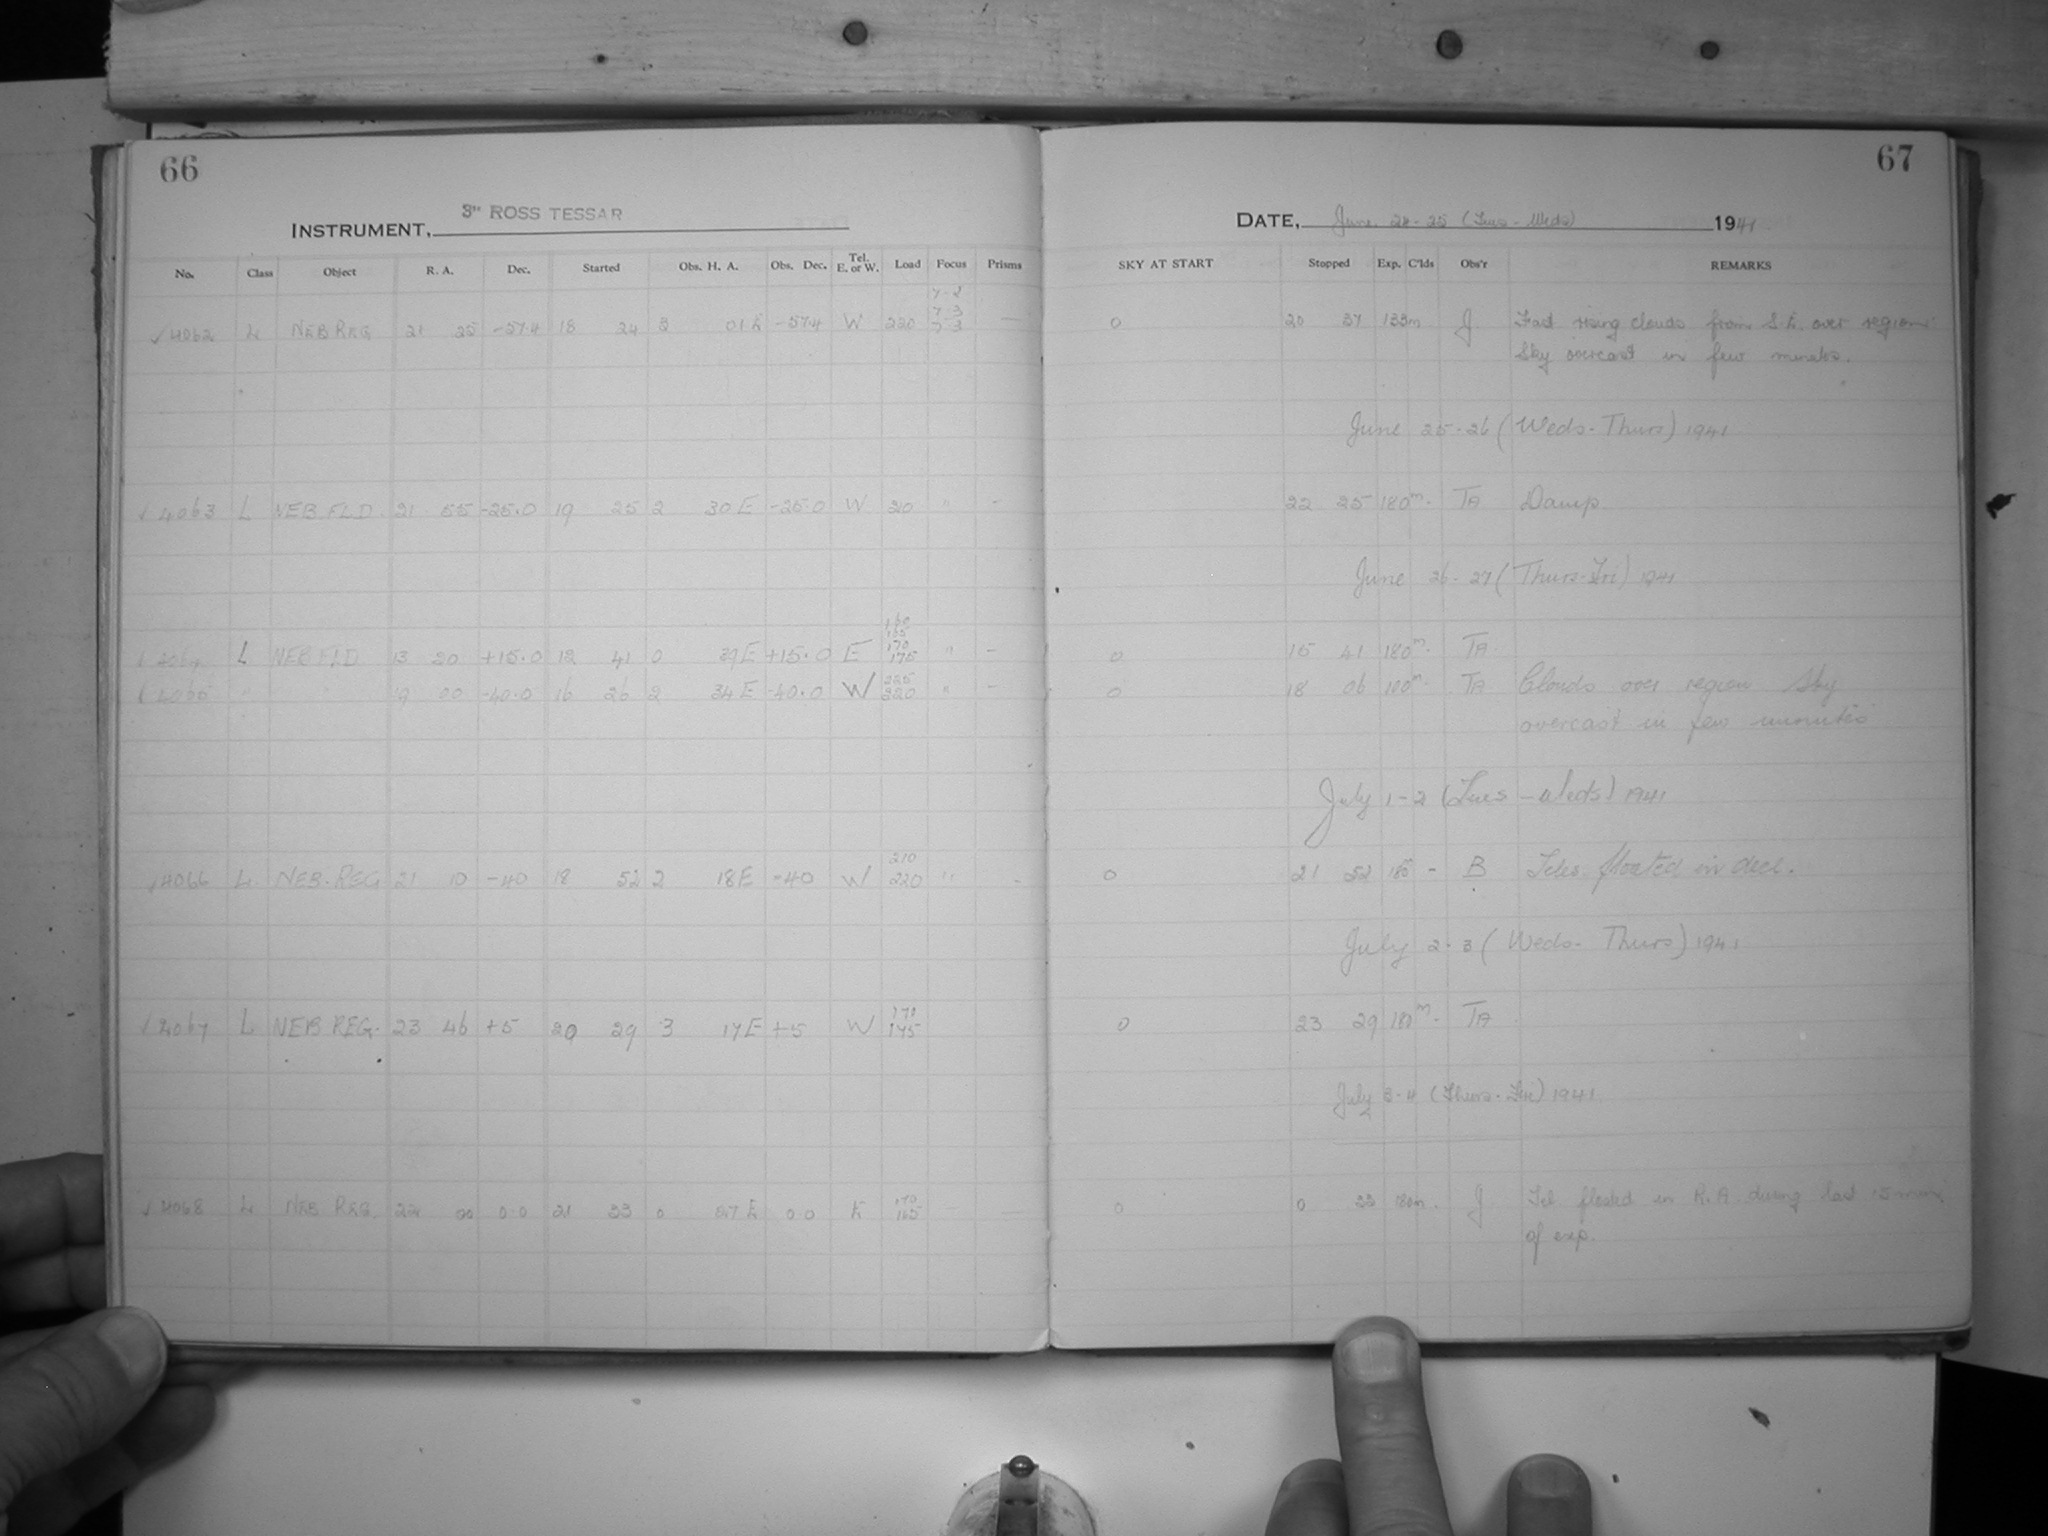 66
INSTRUMENT, 3" ROSS TESSAR
No. Class Object R. A. Dec. Started Obs. H. A. Obs. Dec. Tel. E. or W. Load Focus Prisms
7.2
7.3
✓4062 L NEB REG 21 25 -57.4 18 24 3 01 E -57.4 W 220 7.3 —
✓4063 L NEB.FLD. 21 55 -25.0 19 25 2 30 E -25.0 W 210 " -
160
165
170
✓4064 L NEB FLD 13 20 +15.0 12 41 0 39 E +15.0 E 175 " -
225
✓4065 " " 19 00 -40.0 16 26 2 34 E -40.0 W 220 " -
210
✓4066 L. NEB.REG 21 10 -40 18 52 2 18 E -40 W 220 " -
170
✓4067 L NEB REG. 23 46 +5 20 29 3 17 E +5 W 175
170
✓4068 L NEB REG. 22 00 0.0 21 33 0 57 E 0.0 E 165 — —
67
DATE, June 24-25 (Tues - Weds) 1941
SKY AT START Stopped Exp. C'lds Obs'r REMARKS
0 20 37 133m J. Fast rising clouds from S.E. over region
Sky overcast in few minutes.
June 25-26 (Weds-Thurs) 1941
22 25 180m. TA Damp.
June 26-27 (Thurs-Fri) 1941
0 15 41 180m. TA.
0 18 06 100m. TA. Clouds over region Sky
overcast in few minutes
July 1-2 (Tues - Weds) 1941
0 21 52 180 - B Teles. floated in decl.
July 2-3 (Weds- Thurs) 1941
0 23 29 180m. TA.
July 3-4 (Thurs-Fri) 1941
0 0 33 180m. J. Tel floated in R.A. during last 15 mins
of exp.